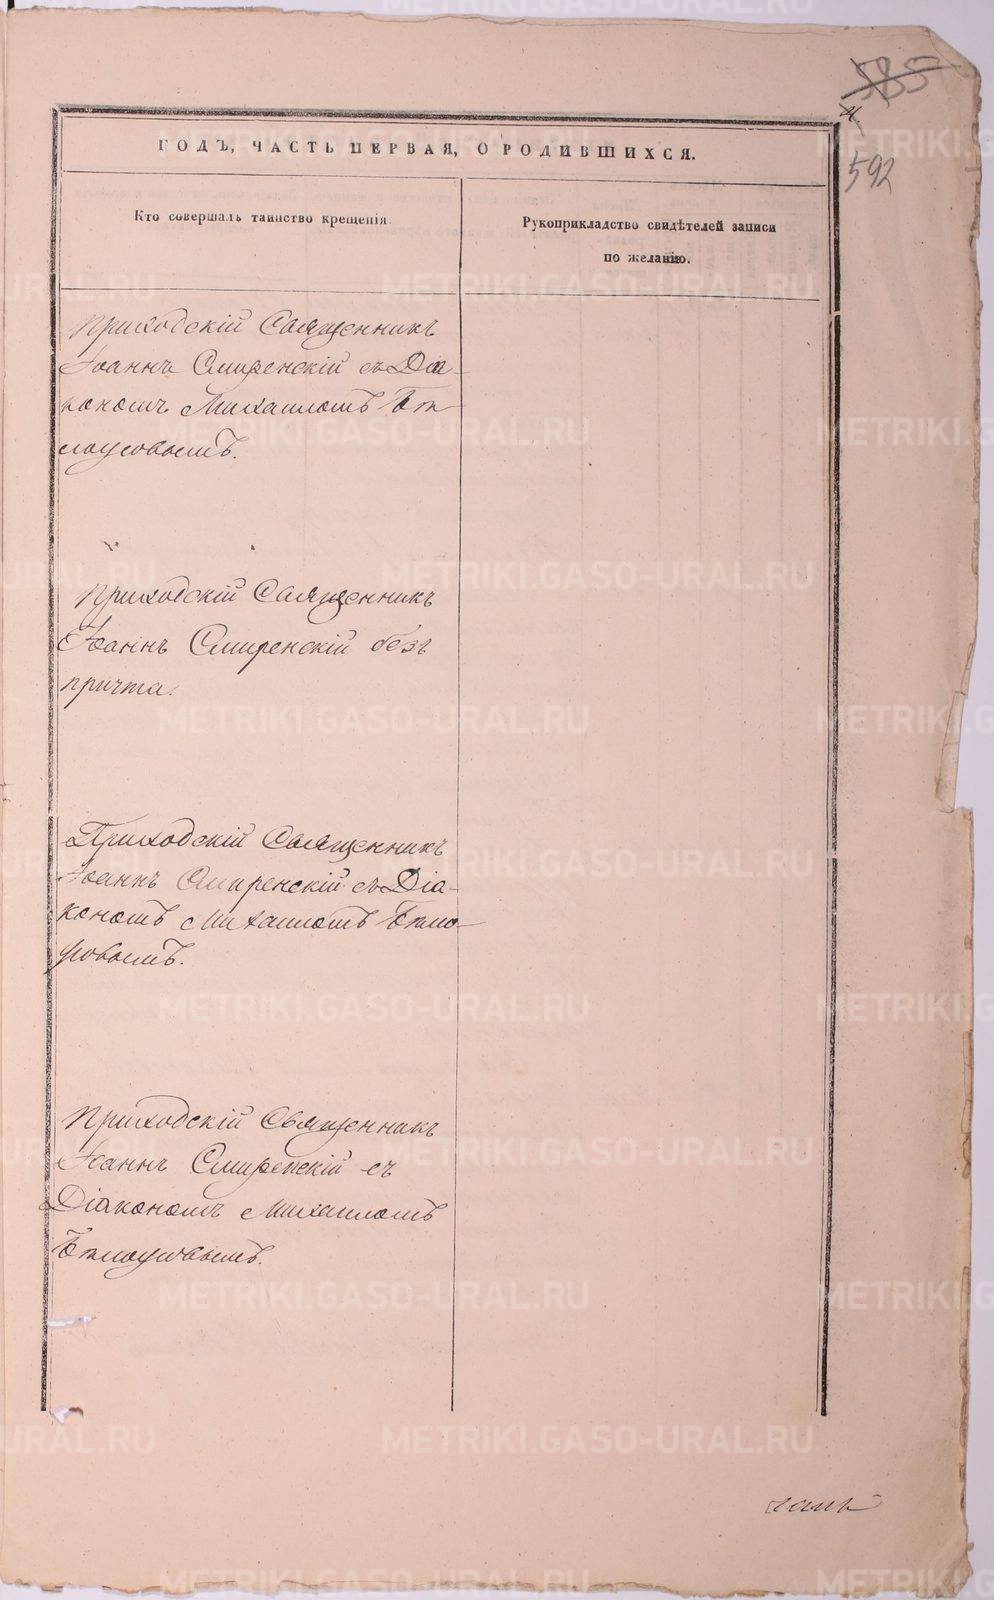 585
592
ГОДЪ, ЧАСТЬ ПЕРВАЯ, О РОДИВШИХСЯ.
Кто совершалъ таинство крещенія.
Рукоприкладство свидѣтелей записи
по желанію.
Приходскій Священникъ
Іоаннъ Смиренскій съ Діа-
кономъ Михаиломъ Бѣ-
лоусовымъ.
Приходскій Священникъ
Іоаннъ Смиренскій безъ
причта.
Приходскій Священникъ
Іоаннъ Смиренскій съ Діа-
кономъ Михаиломъ Бѣло-
усовымъ.
Приходскій Священникъ
Іоаннъ Смиренскій съ
Діакономъ Михаиломъ
Бѣлоусовымъ.
METRIKI.GASO-URAL.RU